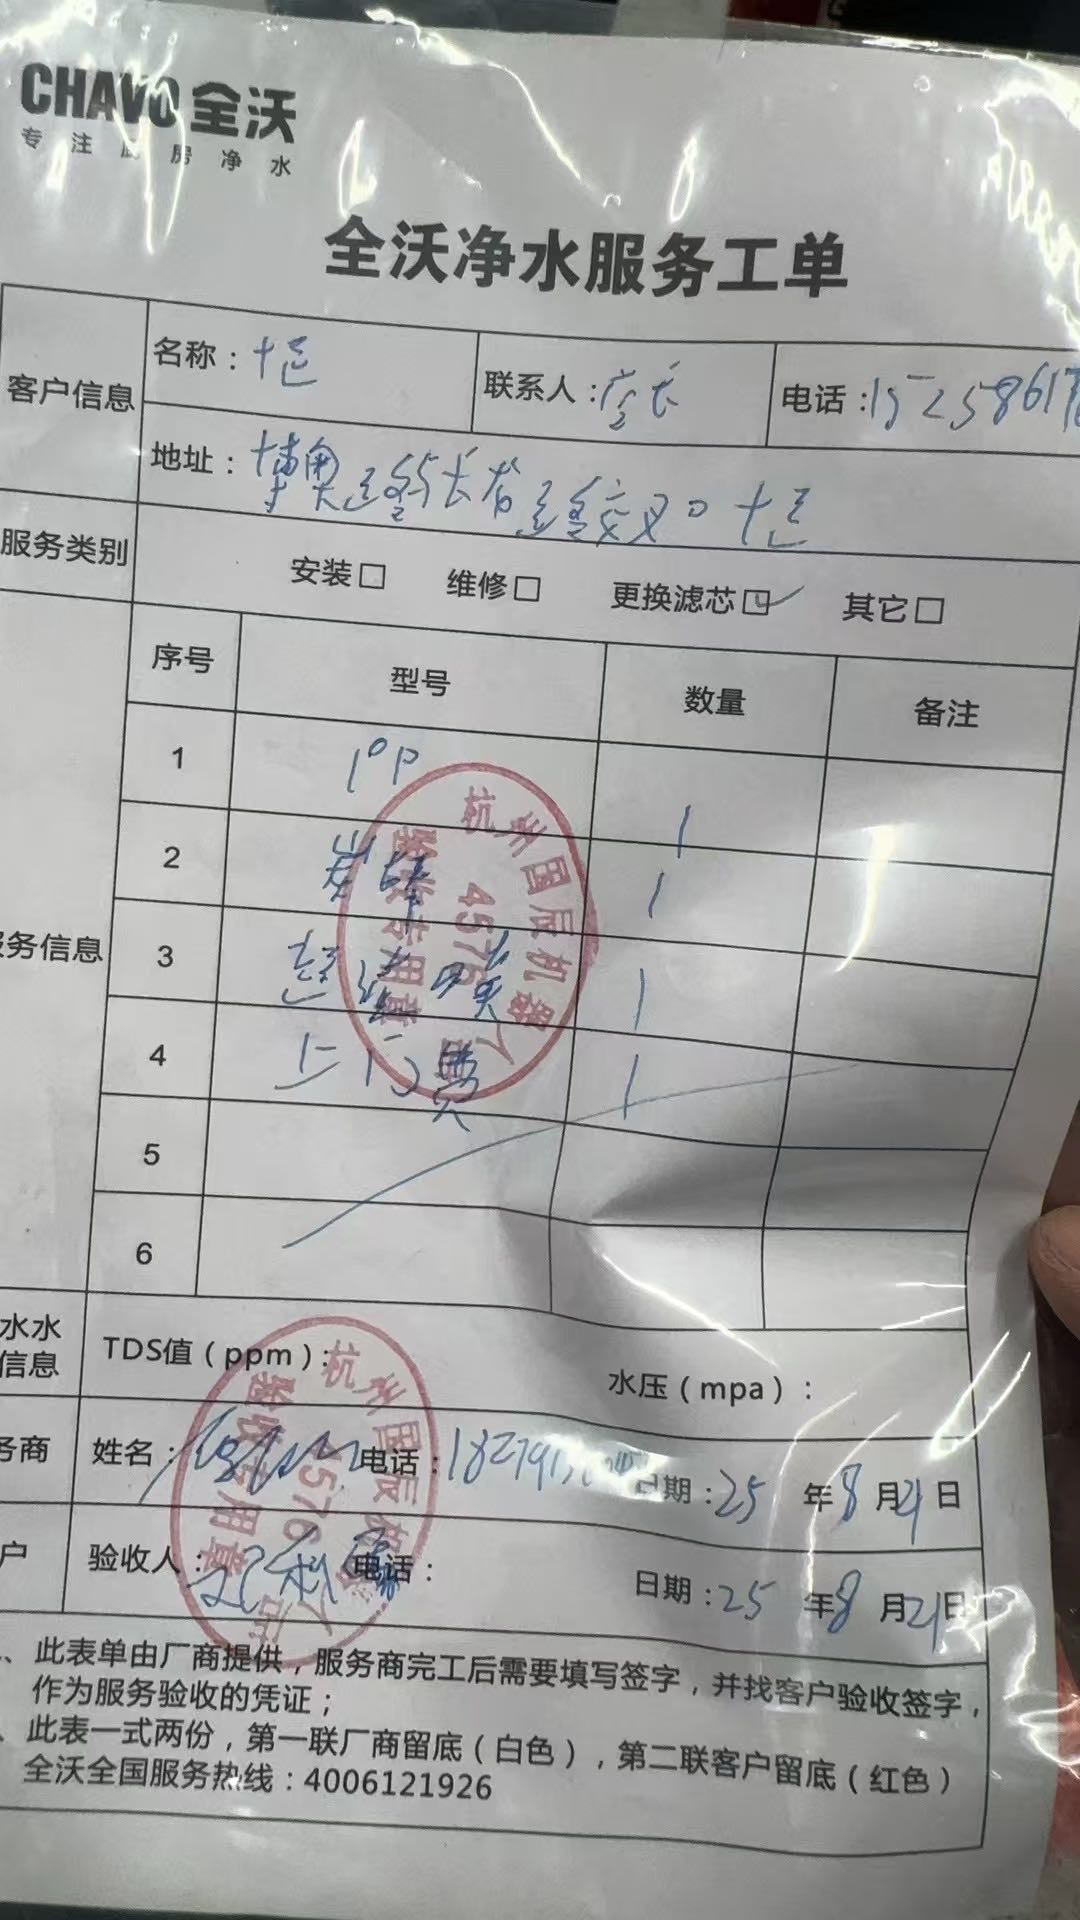 CHAVO 全沃
专注厨房净水
全沃净水服务工单
客户信息
名称：十足
联系人：店长
电话：
地址：博奥路与长岩路交叉口十足
服务类别
安装□ 维修□ 更换滤芯☑ 其它□
服务信息
序号 型号 数量 备注
1 PP 1
2 炭棒 1
3 1
4 上门费 1
5
6
水水
信息
TDS值（ppm）：
水压（mpa）：
务商
姓名：
电话：
日期：25年8月21日
户
验收人：
电话：
日期：25年8月21日
、此表单由厂商提供，服务商完工后需要填写签字，并找客户验收签字，
作为服务验收的凭证；
、此表一式两份，第一联厂商留底（白色），第二联客户留底（红色）
全沃全国服务热线：4006121926
杭州国辰机器人
4576店
验收专用章
杭州国辰机器人
4576店
验收专用章